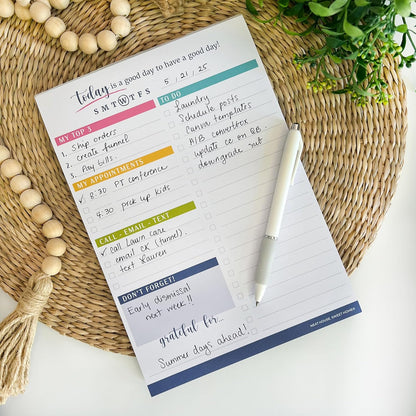 today is a good day to have a good day!
S M T W T F S
5 / 21 / 25
MY TOP 3
1. Ship orders
2. create funnel
3. Pay bills.
MY APPOINTMENTS
✓ 8:30 PT conference
4:30 pick up kids
CALL - EMAIL - TEXT
✓ call Lawn care
email CK (funnel).
text Lauren
DON'T FORGET!
Early dismissal
next week!!
grateful for...
Summer days ahead!
TO DO
Laundry
Schedule posts
Canva templates
A/B convertbox
update cc on BB.
downgrade
NEAT HOUSE. SWEET HOME®